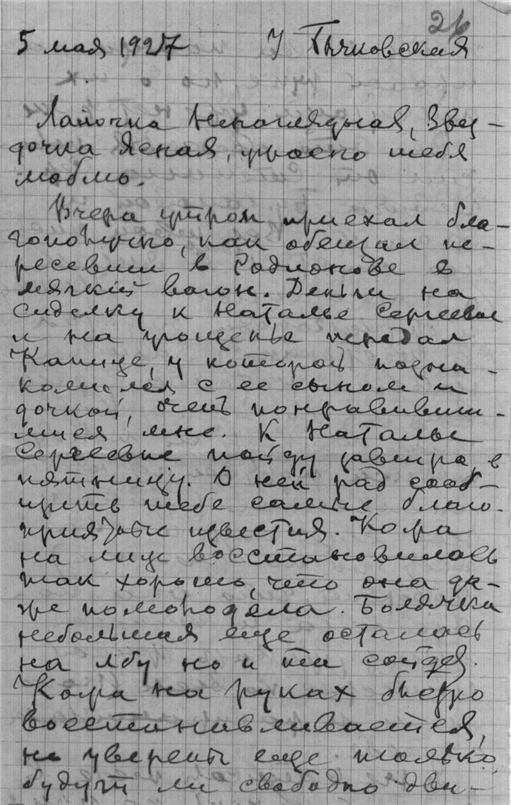 26
5 мая 1927 У Тычковская
Лапочка Ненаглядная, Звез-
дочка Ясная, ужасно тебя
люблю.
Вчера утром приехал бла-
гополучно, как обещал пе-
ресевши в Родионове в
мягкий вагон. Деньги на
сиделку к Наталье Сергеевне
и на угощенье передал
Капице, у которой позна-
комился с ее сыном и
дочкой, очень понравивши-
мися мне. К Наталье
Сергеевне пойду завтра, в
пятницу. О ней рад сооб-
щить тебе самые благо-
приятные известия. Кожа
на лице восстановилась
так хорошо, что она да-
же помолодела. Болячка
небольшая еще осталась
на лбу но и та сойдет.
Кожа на руках быстро
восстанавливается,
не уверены еще только,
будут ли свободно дви-